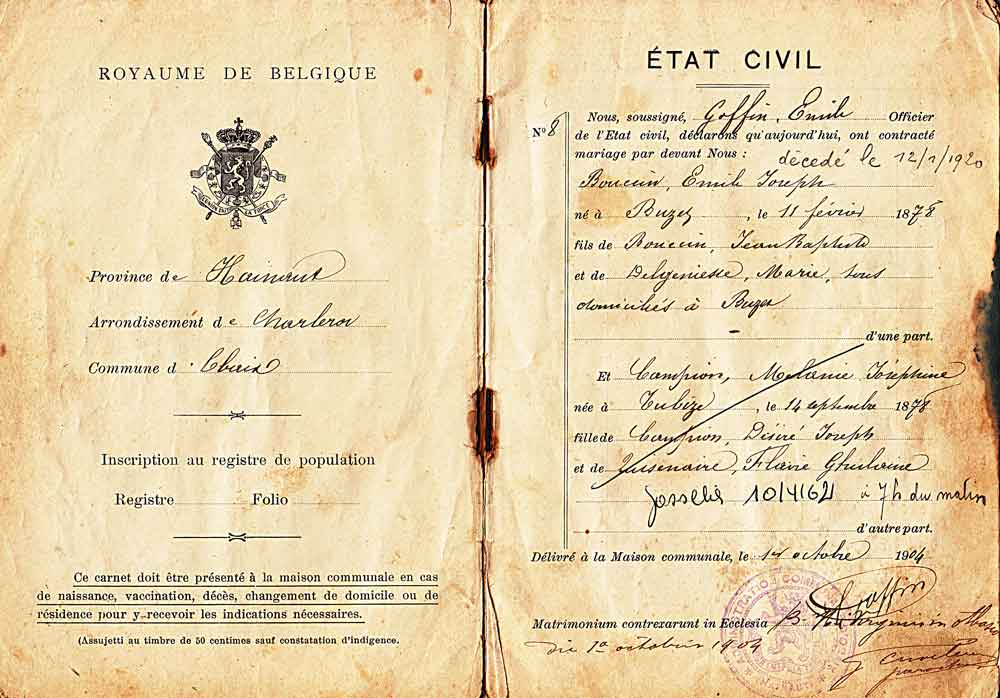 ROYAUME DE BELGIQUE
L'UNION FAIT LA FORCE
Province de Hainaut
Arrondissement de Charleroi
Commune d
Inscription au registre de population
Registre Folio
Ce carnet doit être présenté à la maison communale en cas
de naissance, vaccination, décès, changement de domicile ou de
résidence pour y recevoir les indications nécessaires.
(Assujetti au timbre de 50 centimes sauf constatation d'indigence.
ÉTAT CIVIL
N° 8
Nous, soussigné, Goffin, Emile Officier
de l'Etat civil, déclarons qu'aujourd'hui, ont contracté
mariage par devant Nous :
décedé le 12/1/1920
Bouccin, Emile Joseph
né à Buzet, le 11 février 1878
fils de Bouccin, Jean Baptiste
et de Delgeniesse, Marie, tous
domiciliés à Buzet
d'une part.
Et Campion, Mélanie Joséphine
née à Tubize, le 14 septembre 1878
fille de Campion, Désiré Joseph
et de Flavie Ghislaine
10/4/62 à 7h du matin
d'autre part.
Délivré à la Maison communale, le 1er octobre 1904
Goffin
Matrimonium contrexarunt in Ecclesia
die 1a octobris 1904